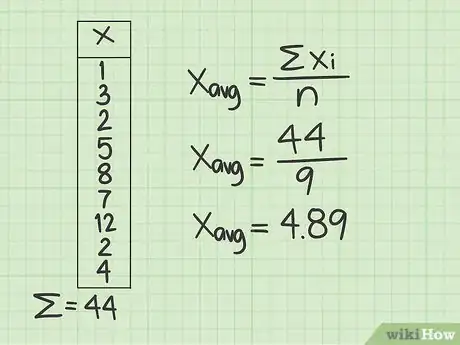 X
1
3
2
5
8
7
12
2
4
Σ = 44
Xavg = Σ Xi / n
Xavg = 44 / 9
Xavg = 4.89
wikiHow